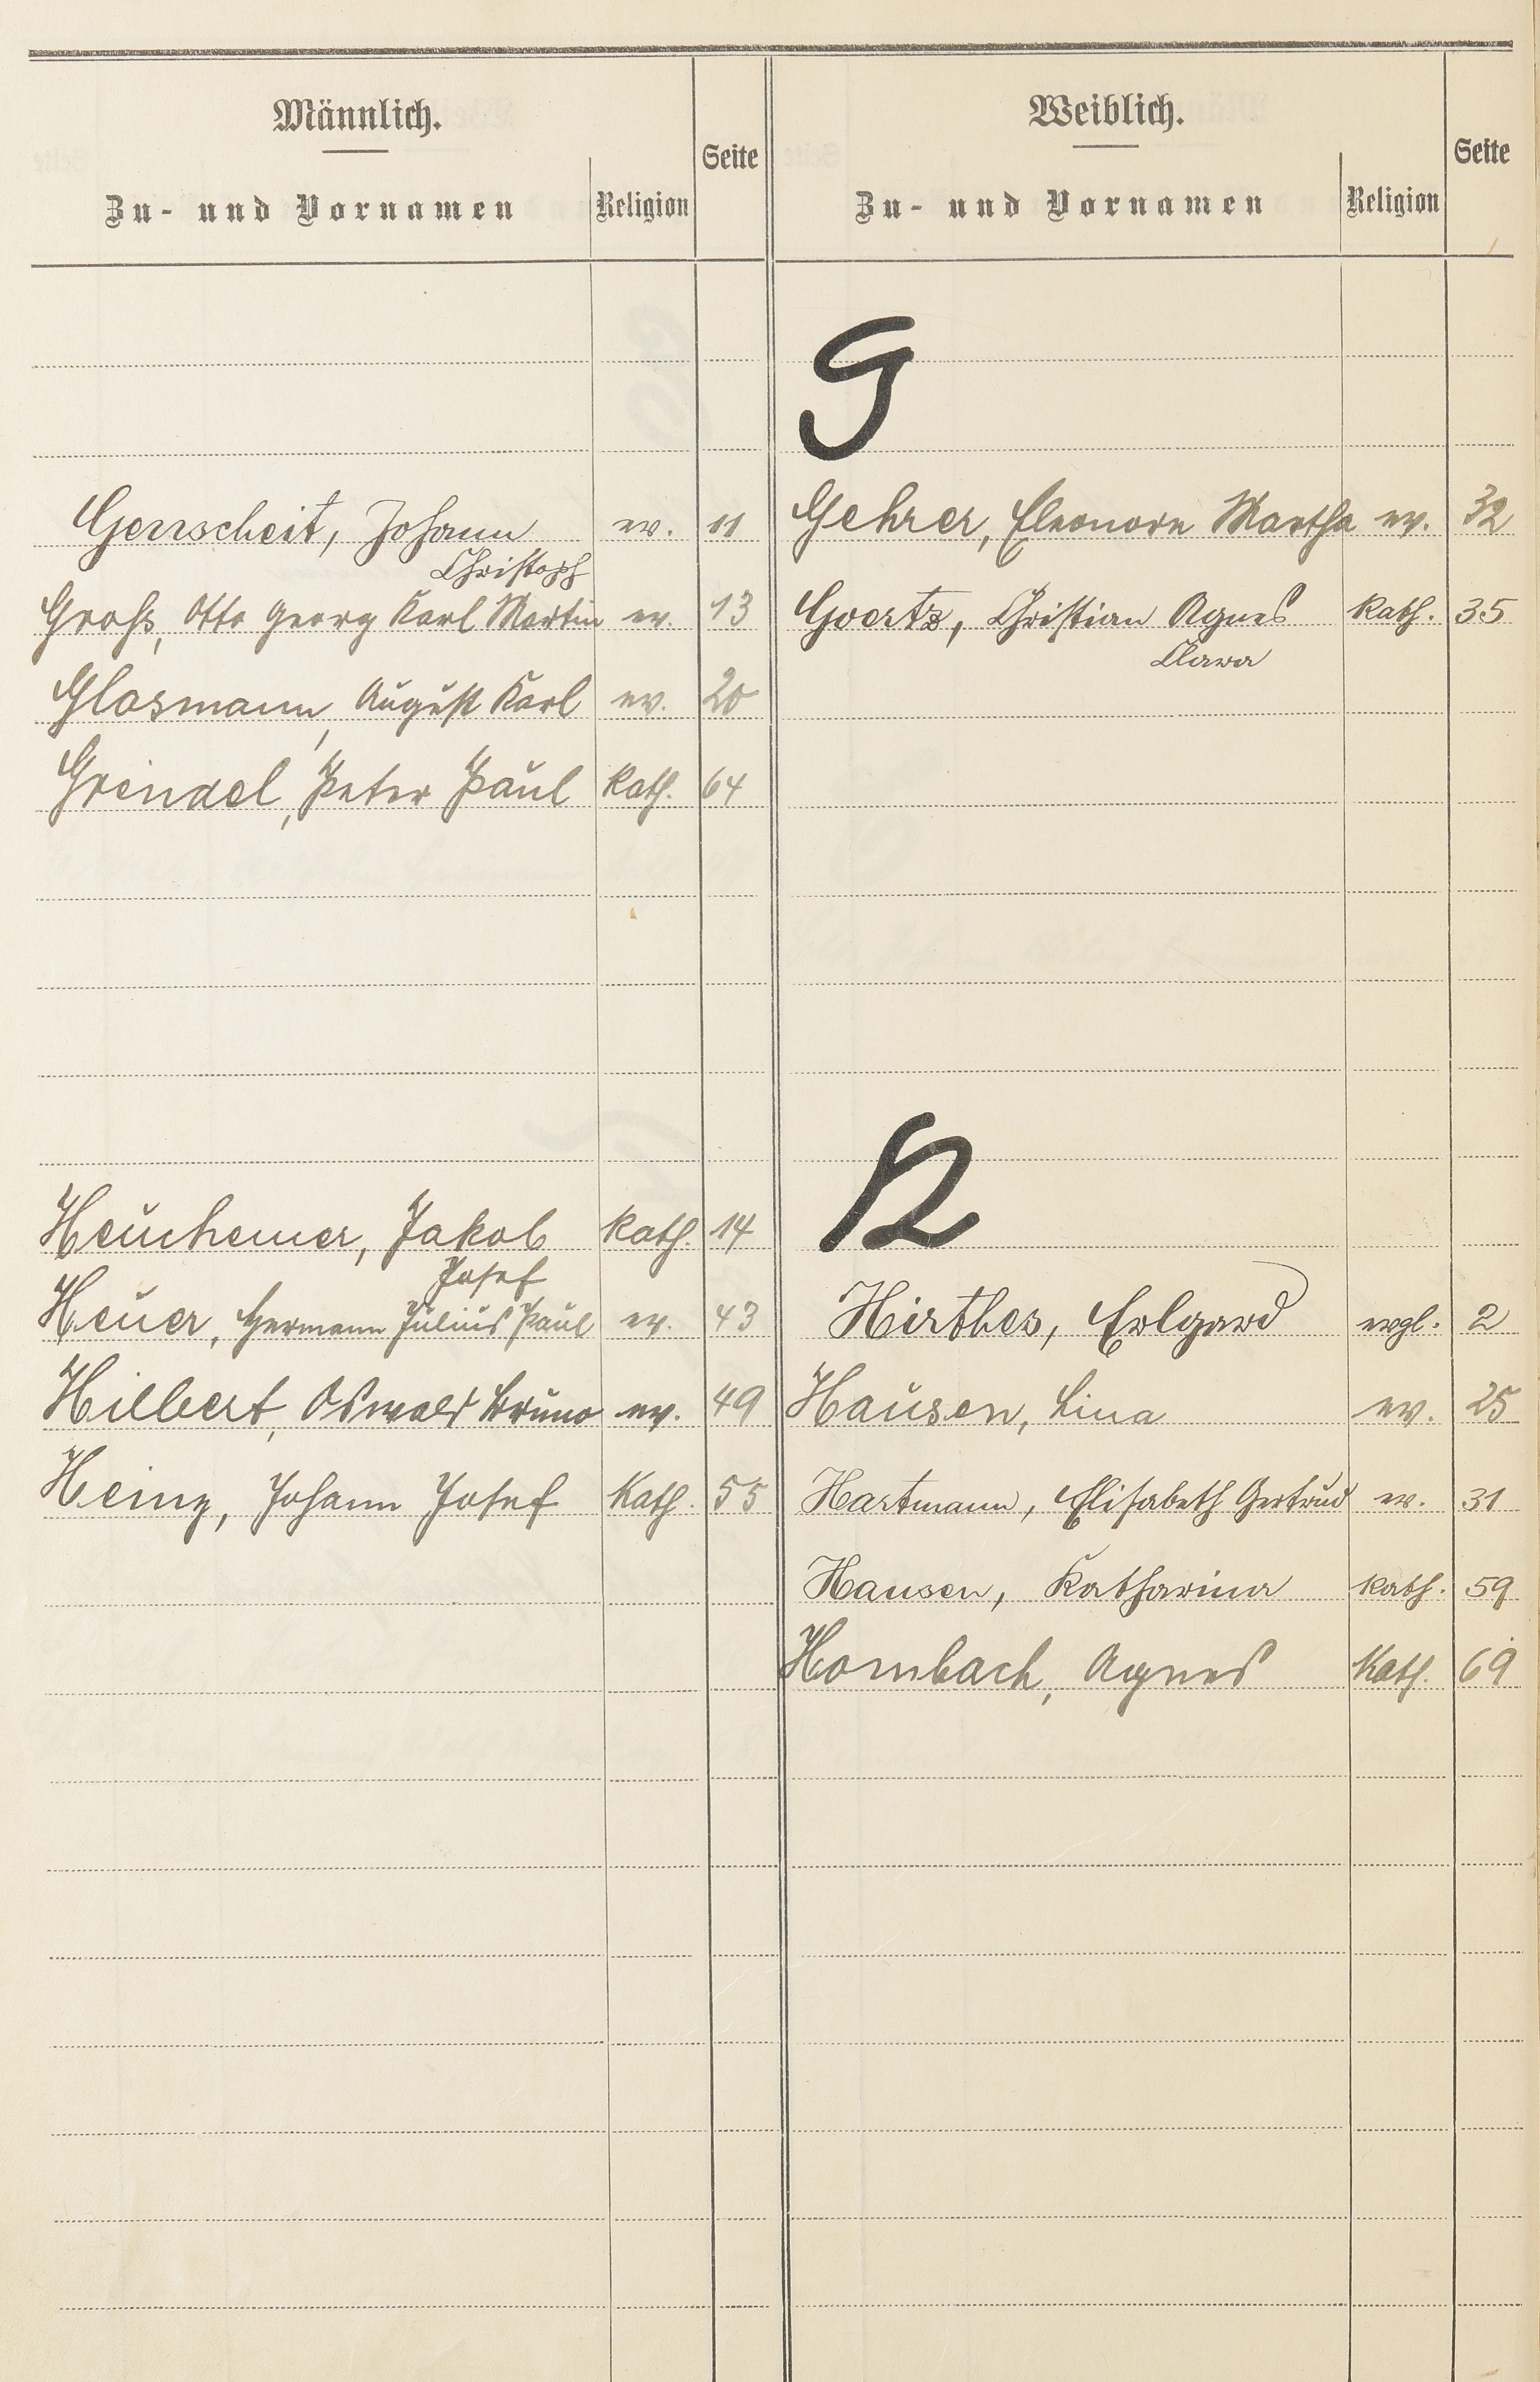 Männlich.
Zu- und Vornamen Religion Seite
Weiblich.
Zu- und Vornamen Religion Seite
G
Gerrscheit, Johann ev. 11
Christoph
Groß, Otto Georg Karl Martin ev. 13
Glasmann, August Karl ev. 20
Grendel, Peter Paul kath. 64
Gehrer, Eleonore Martha ev. 32
Goertz, Christian Agnes kath. 35
Clara
H
Heuchemer, Jakob kath. 14
Josef
Heuer, Hermann Julius Paul ev. 43
Hilbert, Oswald Bruno ev. 49
Heinz, Johann Josef Kath. 55
Hirthes, Erlgard evgl. 2
Hausen, Lina ev. 25
Hartmann, Elisabeth Gertrud ev. 31
Hausen, Katharina kath. 59
Hombach, Agnes Kath. 69